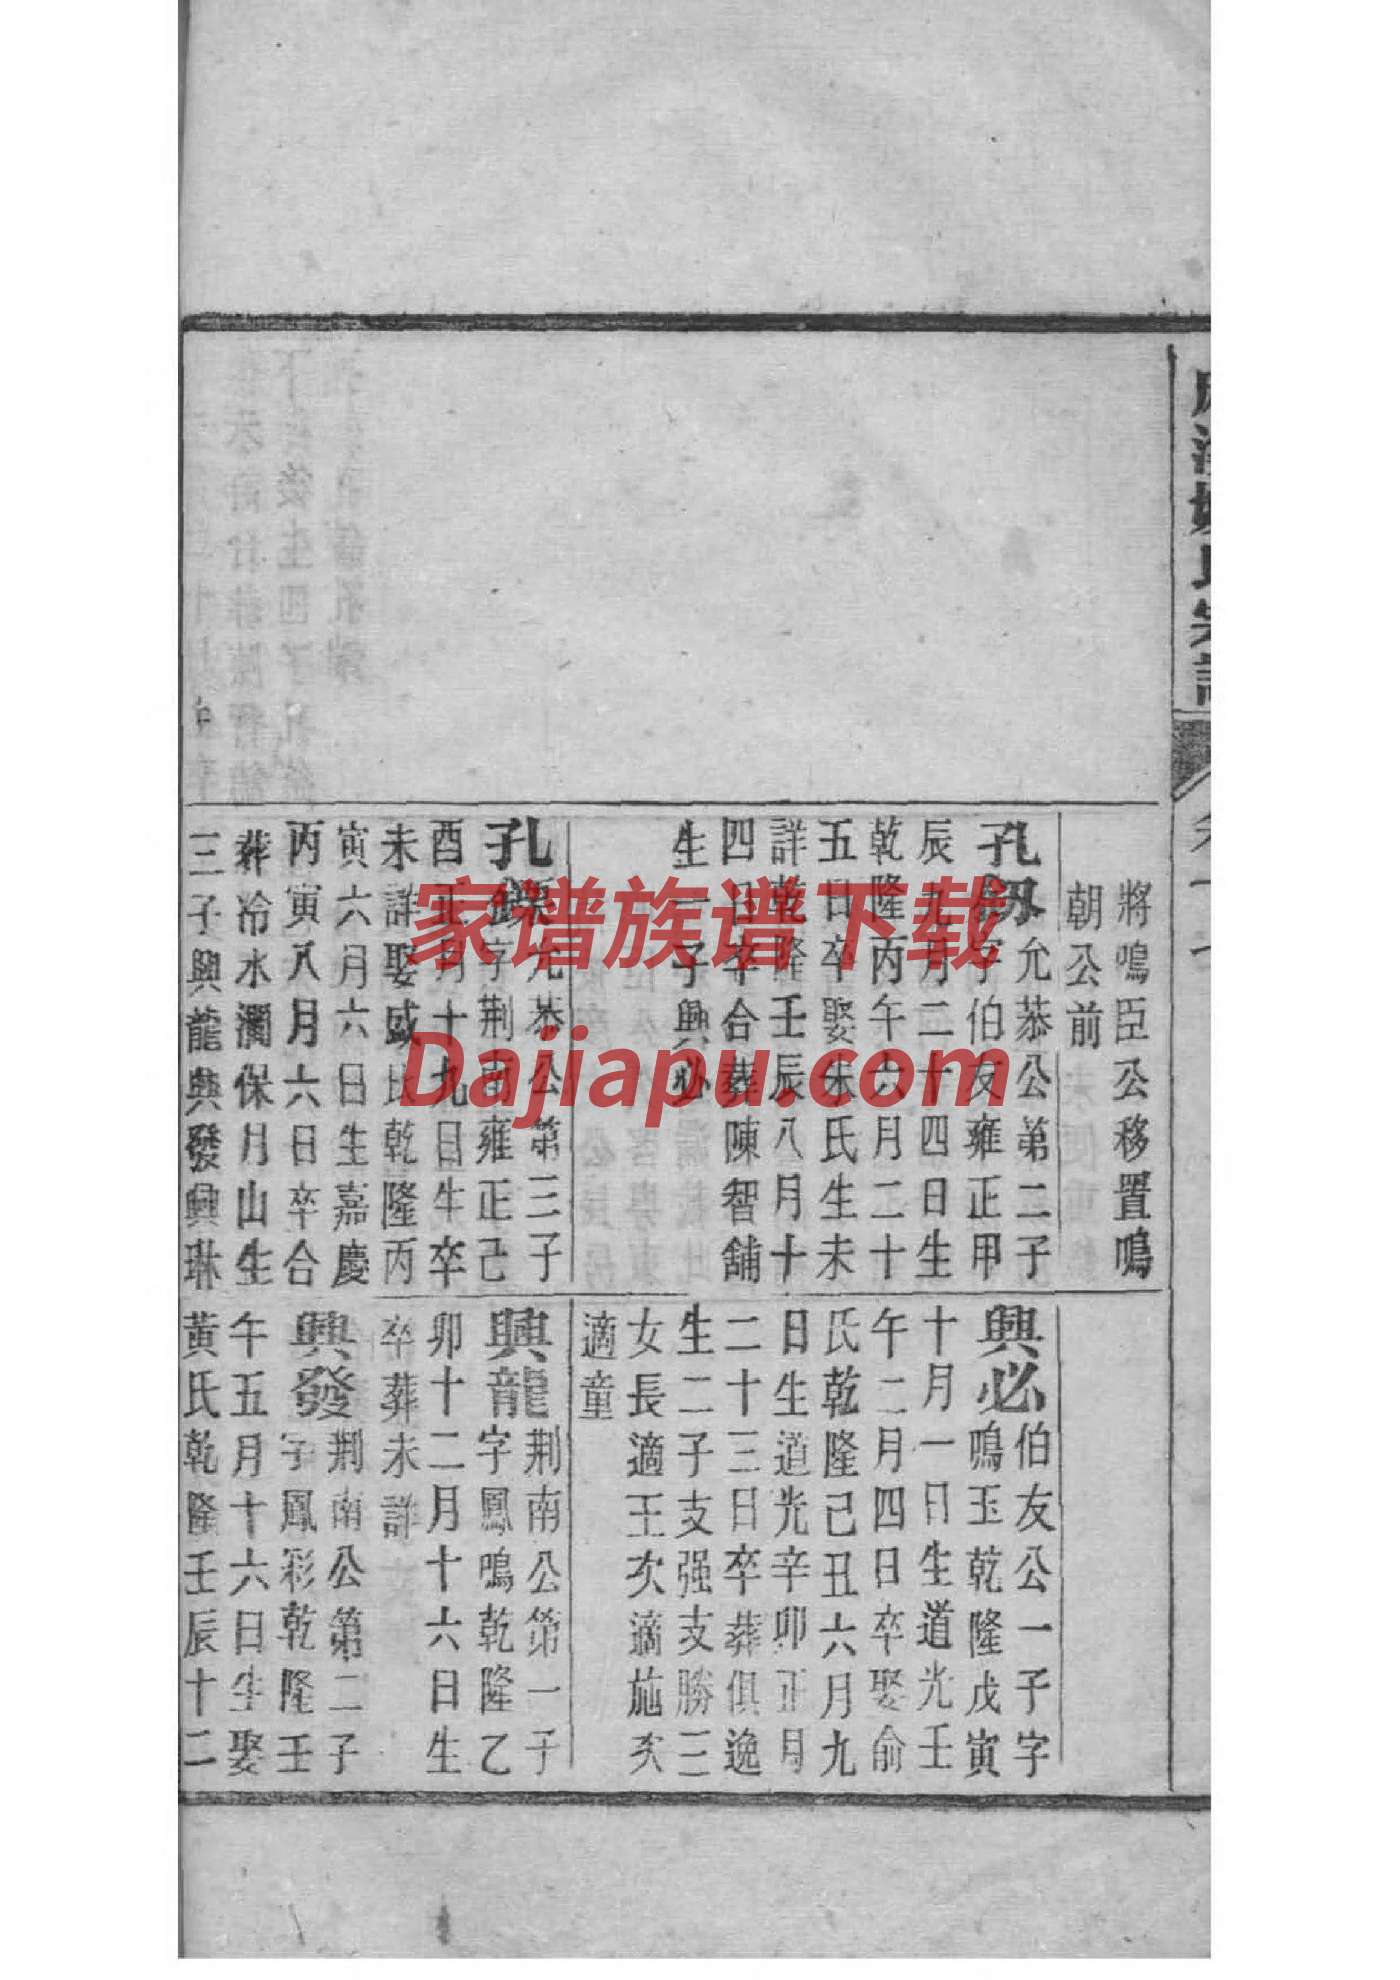 將鳴臣公移置鳴
朝公前
孔釰允恭公第二子
字伯友雍正甲
辰九月二十四日生
乾隆丙午六月二十
五日卒娶朱氏生未
詳乾隆壬辰八月十
四日卒合葬陳智舖
生一子興必
孔
允恭公第三子
字荆南雍正己
酉正月十九日生卒
未詳娶盛氏乾隆丙
寅六月六日生嘉慶
丙寅八月六日卒合
葬冷水澗保月山生
三子興龍興發興琳
興必伯友公一子字
鳴玉乾隆戊寅
十月一日生道光壬
午二月四日卒娶俞
氏乾隆己丑六月九
日生道光辛卯正月
二十三日卒葬俱逸
生二子支强支勝三
女長適王次適施次
適童
興龍荆南公第一子
字鳳鳴乾隆乙
卯十二月十六日生
卒葬未詳
興發荆南公第二子
字鳳彩乾隆壬
午五月十六日生娶
黃氏乾隆壬辰十二
家谱族谱下载
Dajiapu.com